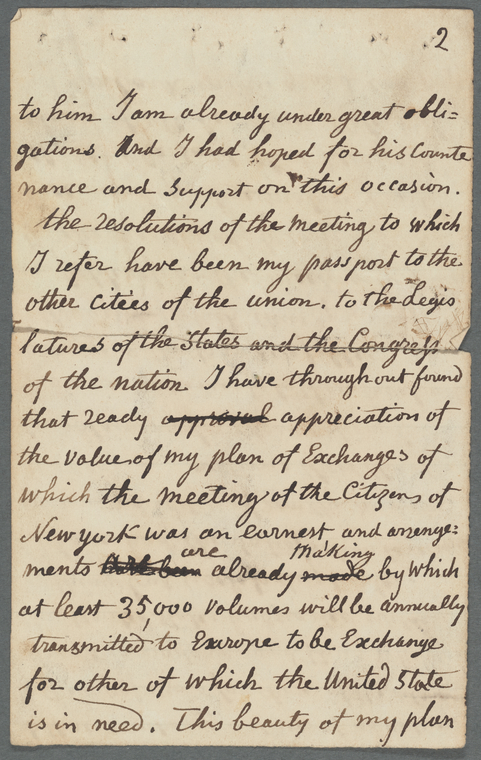 2
to him I am already under great obli=
gations. And I had hoped for his Counte
nance and Support on this occasion.
the resolutions of the meeting to which
I refer have been my passport to the
other citees of the union. to the Legis
latures of the States and the Congress
of the nation I have throughout found
that ready approval appreciation of
the value of my plan of Exchanges of
which the meeting of the Citizens of
New york was an earnest and arrange=
ments have been are already made making by which
at least 35,000 volumes will be annually
transmitted to Europe to be Exchange
for other of which the United State
is in need. This beauty of my plan